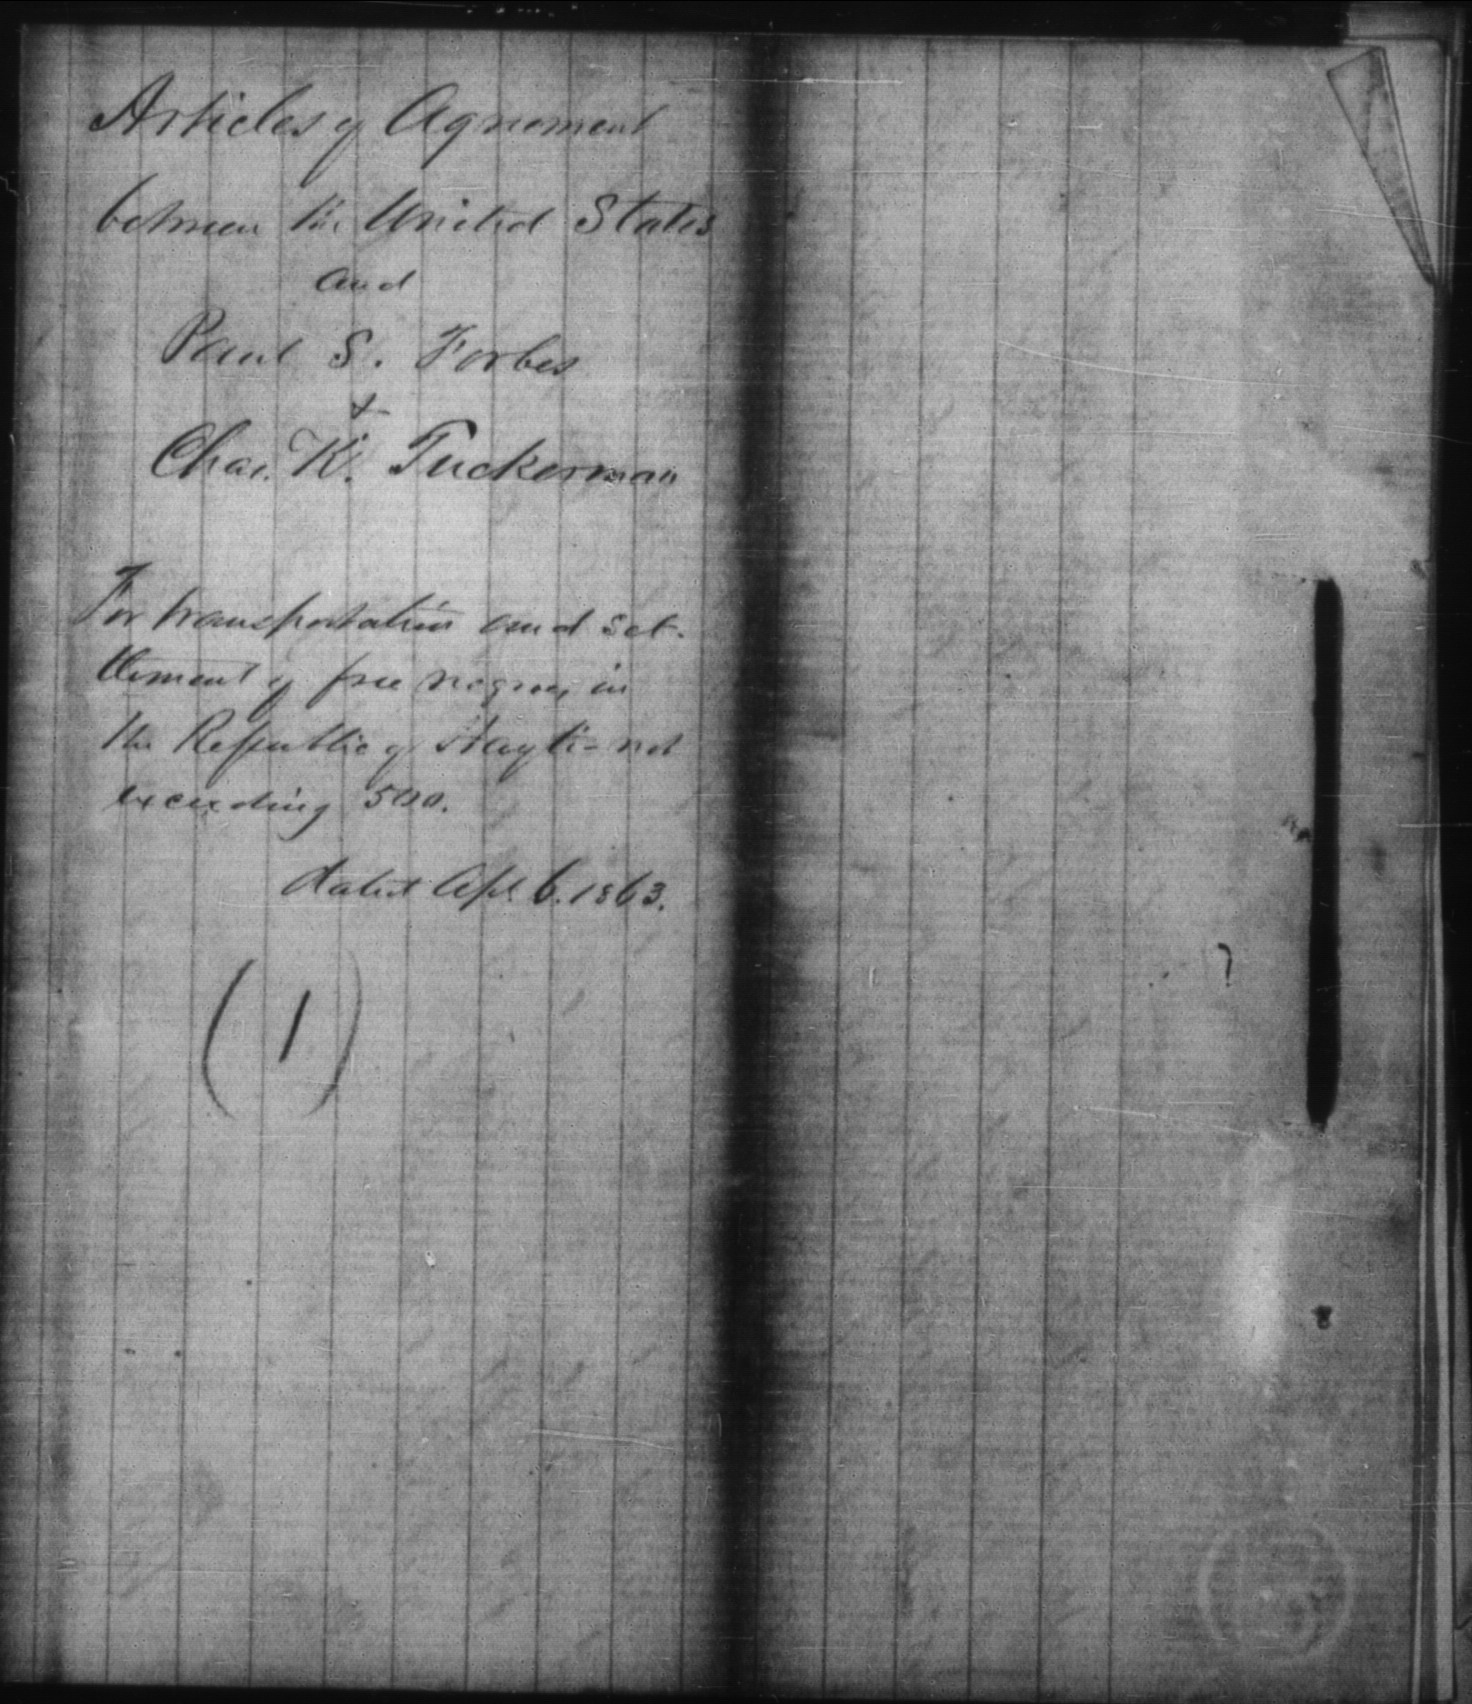 Articles of Agreement
between the United States
and
Paul S. Forbes
&
Chas. K. Tuckerman
For transportation and set-
tlement of free negroes in
the Republic of Hayti - not
exceeding 500.
dated Apl. 6. 1863.
(1)